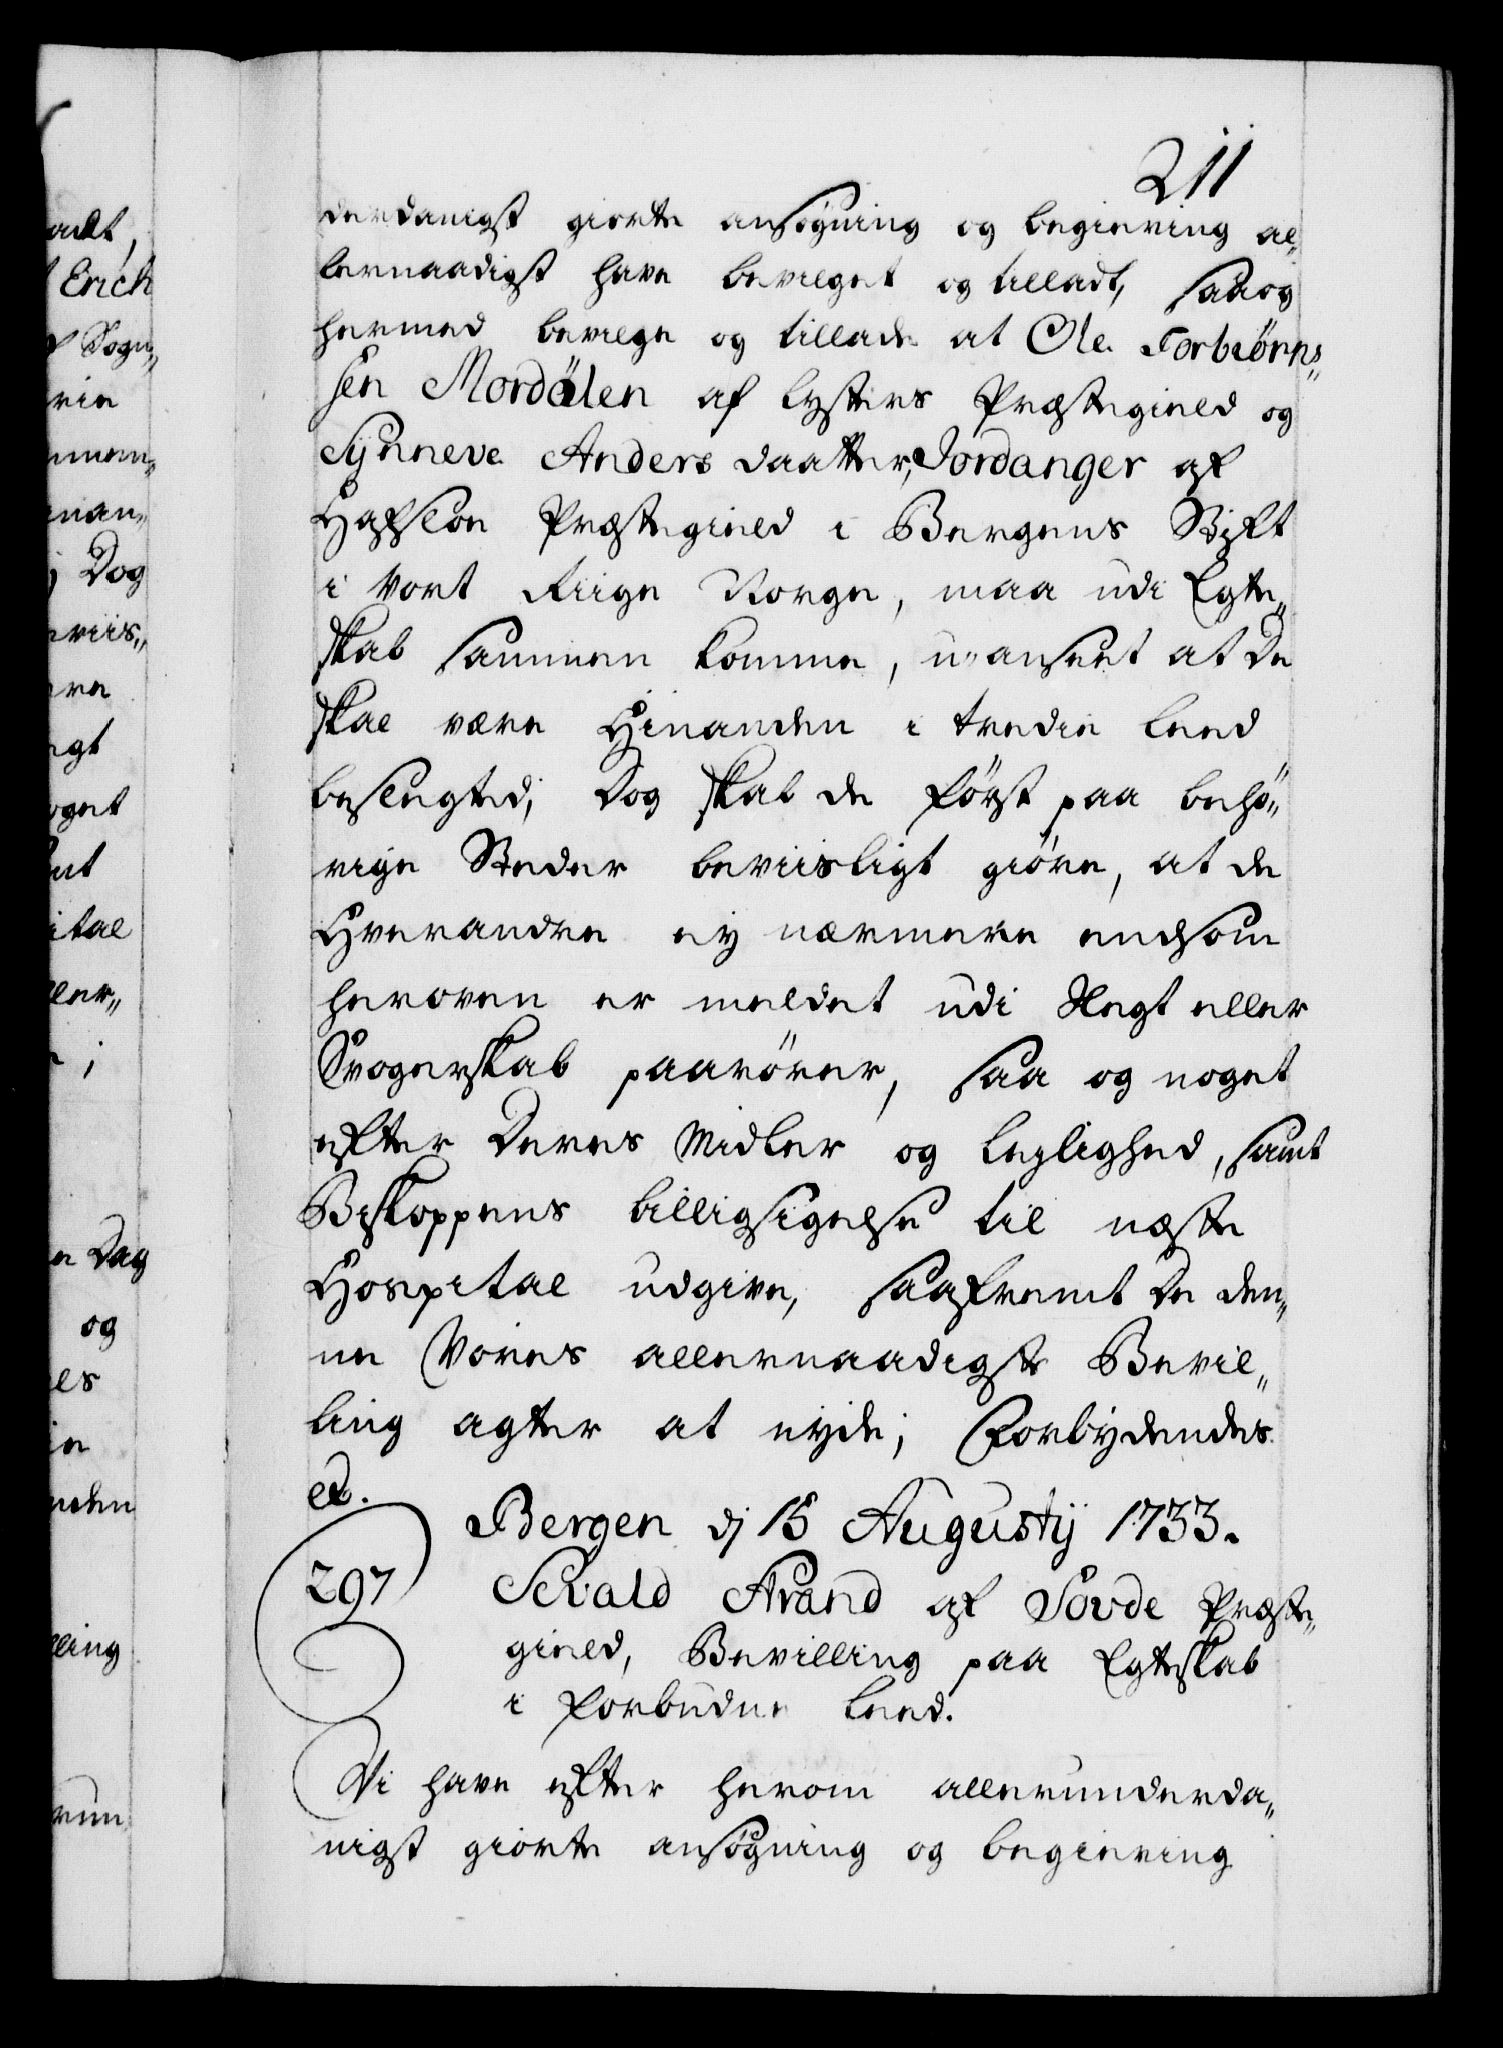 211
derdanigst giorte ansøgning og begiering al„
lernaadigst have bevilget og tilladt, saa og
hermed bevilge og tillade at Ole Torbiørns„
sen Mordalen af Lysters Præstegield og
Synneve Anders daatter, Jordanger af
Hafsloe Præstegield i Bergens Stift
i Vort Riige Norge, maa udi Egte„
skab sammen komme, u-anseet at De
skal være Hinanden i tredie Leed
beslegted; Dog skal de først paa behø„
rige Steder beviisligt giøre, at de
Hverandre ey nærmere end som
heroven er meldet udi Slegt eller
Svogerskab paarører, saa og noget
efter Deres Midler og leylighed, samt
Biskoppens billigsigelse til næste
Hospital udgive, saafremt De den„
ne Vores allernaadigste Bevil„
ling agter at nyde; Forbydendes
etc.
Bergen dj 15 Augustij 1733.
297 Sevald Arand af Søvde Præste„
gield, Bevilling paa Egteskab
i forbudne Leed.
Vi have efter herom allerunderda„
nigst giorte ansøgning og begiering
adt,
Erich
Sogn„
Dog
viis„
tal
ller„
Dag
og
ling